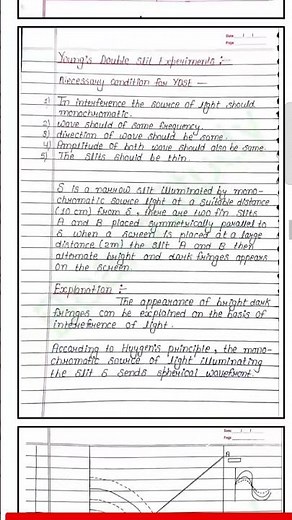 Date / /
Page
Young's Double Slit Experiments :-
Necessary Condition for YDSE -
1) In interference the source of light should
monochromatic.
2) wave should of same frequency.
3) direction of wave should be same.
4) Amplitude of both wave should also be same.
5) The slits should be thin.
S is a narrow slit illuminated by mono-
chromatic source light at a suitable distance
(10 cm) from S, there are two fin slits
A and B placed symmetrically parallel to
S when a screen is placed at a large
distance (2m) the slit A and B then
alternate bright and dark fringes appears
on the screen.
Explanation :-
The appearance of bright dark
fringes can be explained on the basis of
interference of light.
According to Huygen's principle, the mono-
chromatic source of light illuminating
the slit S sends spherical wavefront.
Date / /
Page